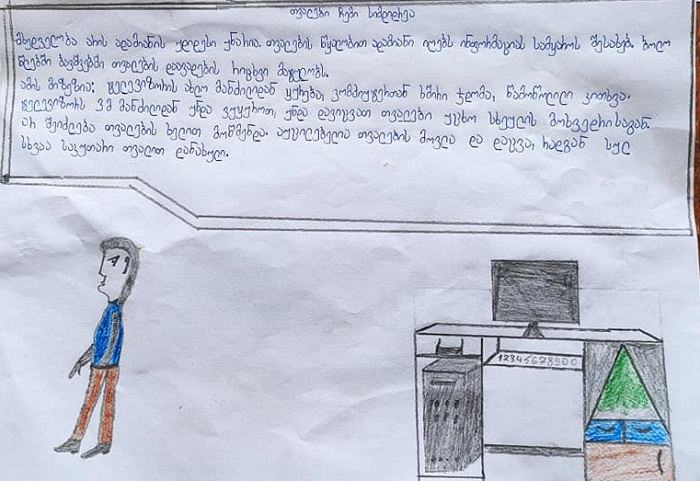 თვალები ჩემი სიმდიდრეა
მხედველობა არის ადამიანის უდიდესი უნარია. თვალების წყალობით ადამიანი იღებს ინფორმაციას სამყაროს შესახებ. ბოლო
წლებში ბავშვებში თვალების დაავადების რიცხვი მატულობს.
ამის მიზეზია: ტელევიზორის ახლო მანძილიდან ყურება, კომპიუტერთან ხშირი ჯდომა, წამოწოლილი კითხვა.
ტელევიზორს 3 მ მანძილიდან უნდა ვუყუროთ, უნდა დავიცვათ თვალები უცხო სხეულის მოხვედრისაგან.
არ შეიძლება თვალების ხელით მოწმენდა. აუცილებელია თვალების მოვლა და დაცვა, რადგან სულ
სხვაა საკუთარი თვალით დანახული.
1234567890 0